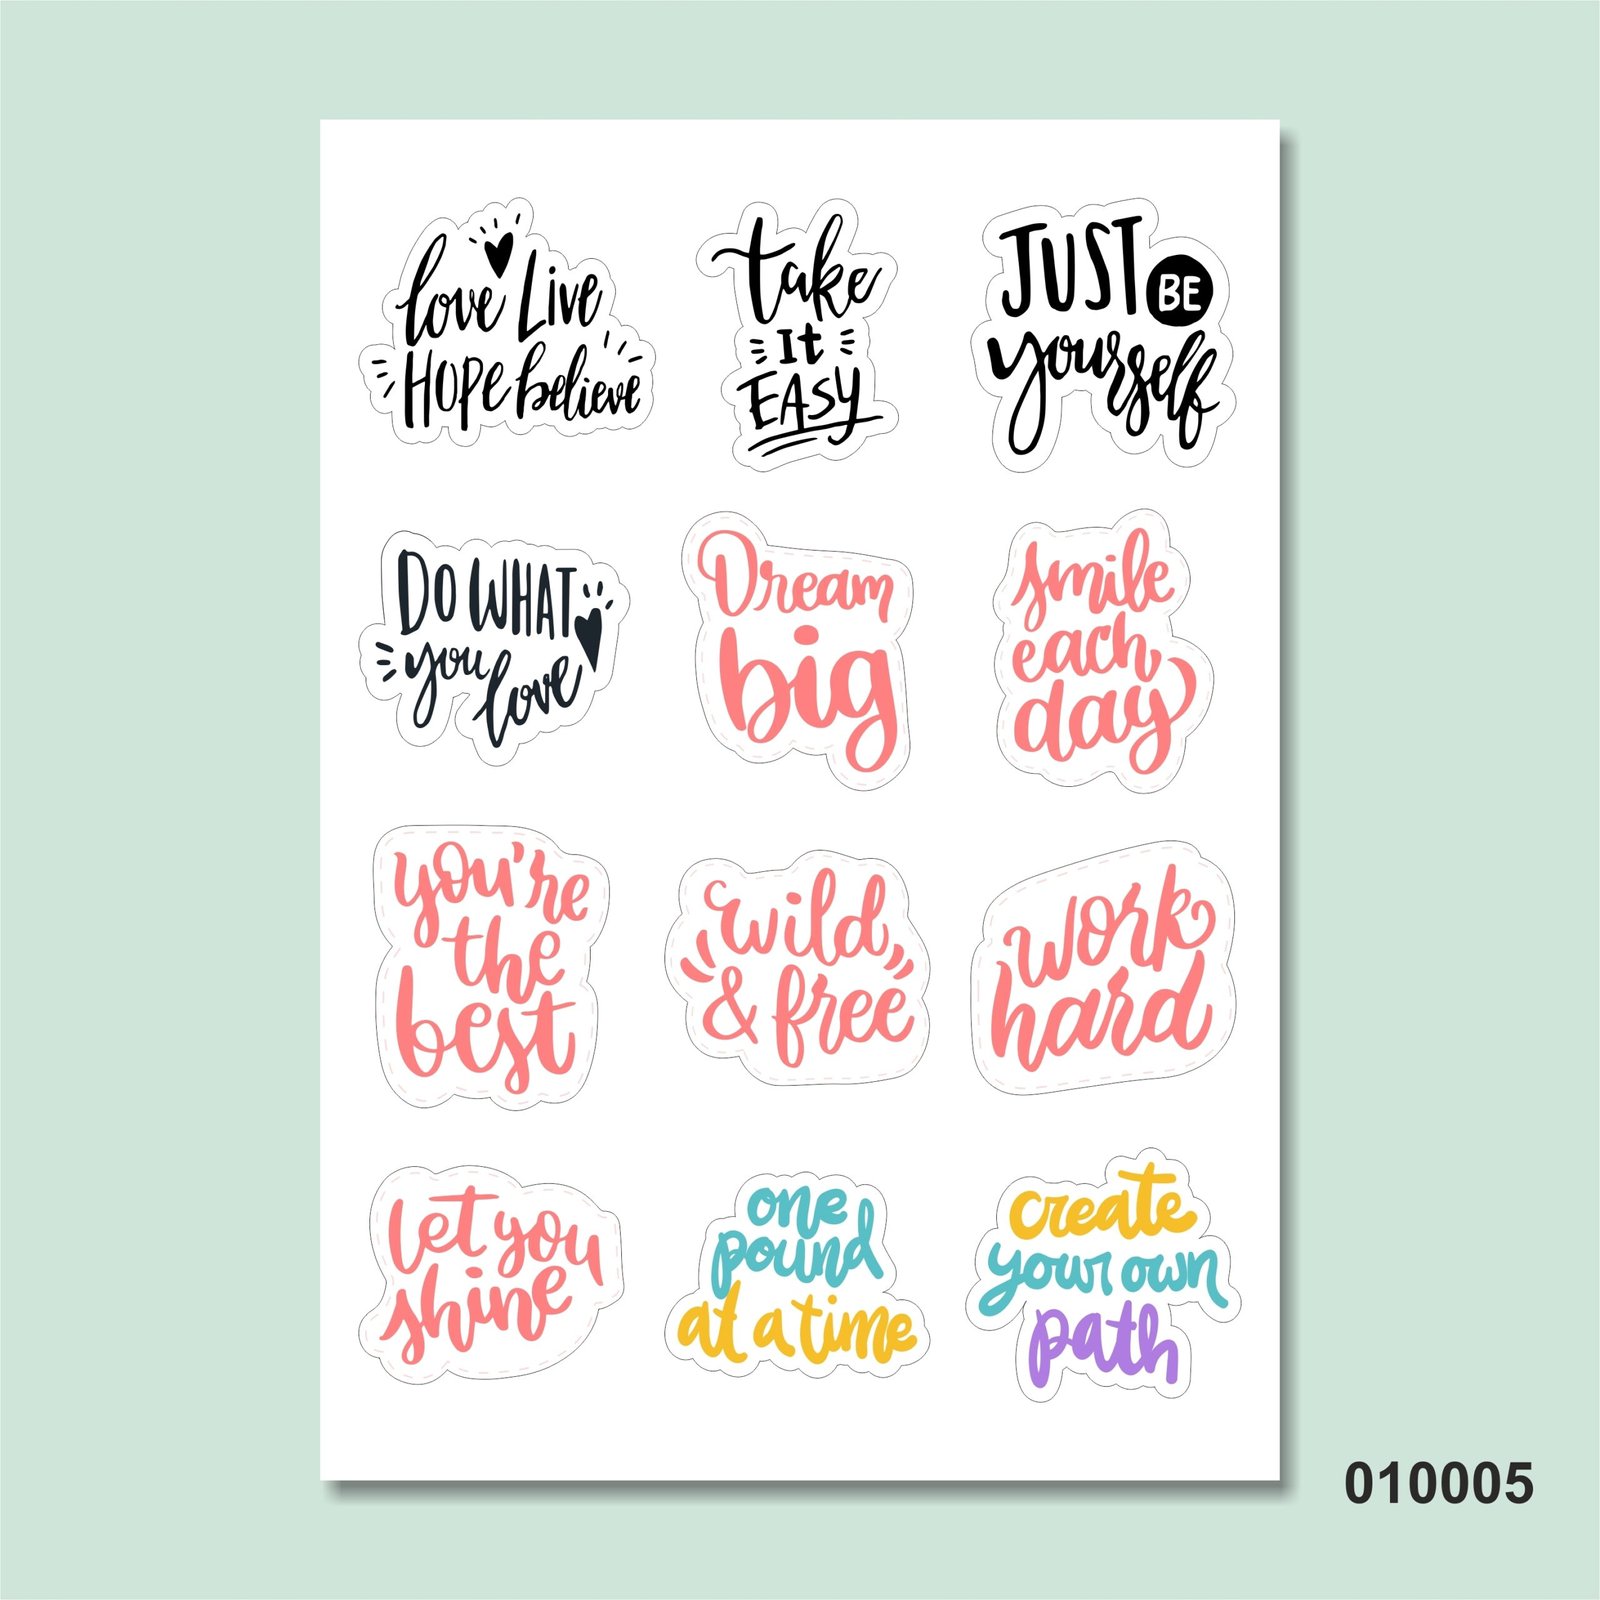 love Live
HOPE believe
take
It
EASY
JUST BE
yourself
DO WHAT
you love
Dream
big
smile
each
day
you're
the
best
wild
& free
work
hard
let you
shine
one
pound
at a time
create
your own
path
010005